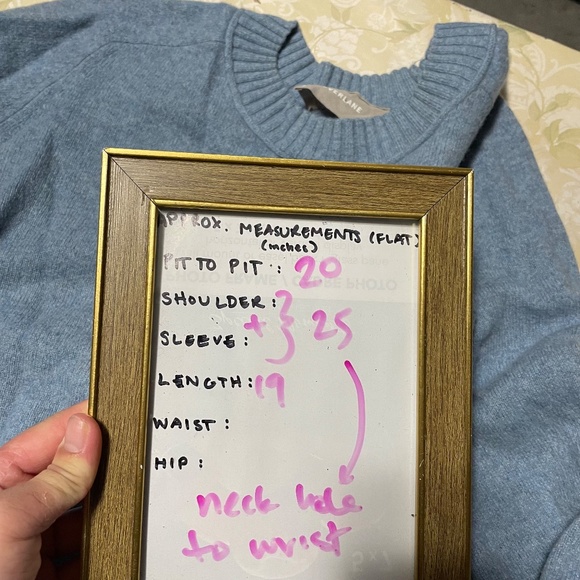 ERLANE
APPROX. MEASUREMENTS (FLAT)
(inches)
PIT TO PIT : 20
SHOULDER :
+ } 25
SLEEVE :
LENGTH : 19
WAIST :
HIP :
neck hole
to wrist